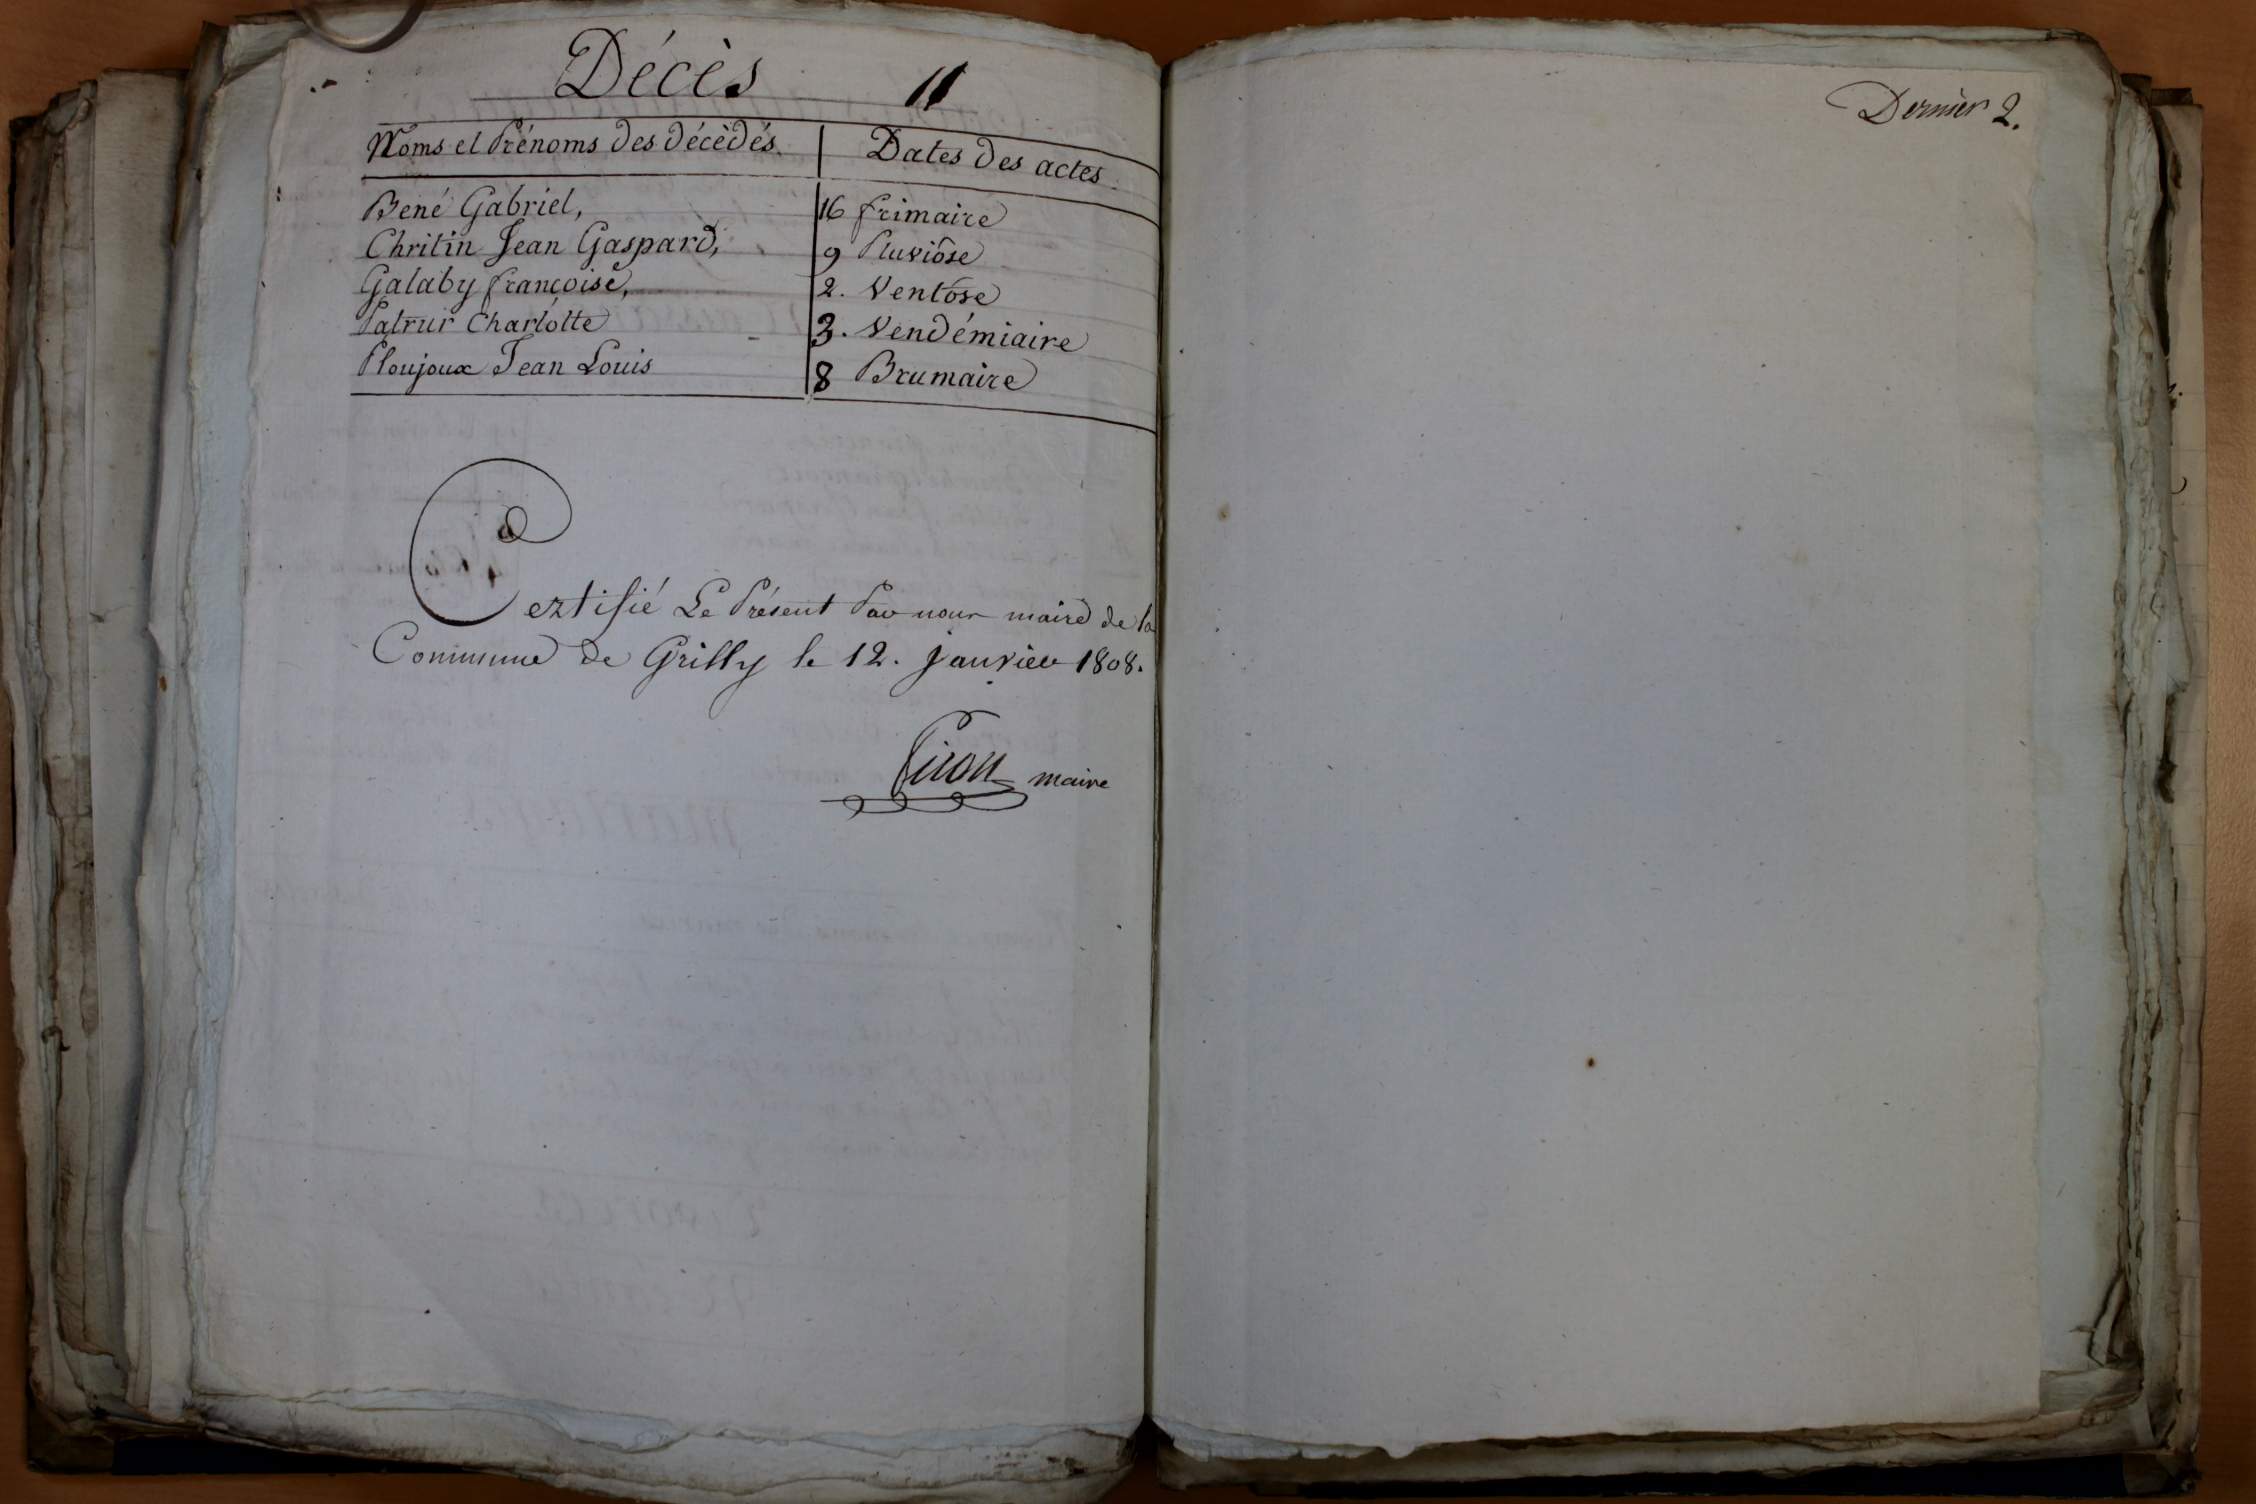 Décès 11
Noms et Prénoms des décèdés. Dates des actes.
Bené Gabriel, 16 frimaire
Chritin Jean Gaspard, 9 Pluviôse
Galaby françoise, 2. Ventôse
Patrur Charlotte 3. Vendémiaire
Ploujoux Jean Louis 8 Brumaire
Certifié Le Présent Par nous maire de la
Commune de Grilly le 12. Janvier 1808.
Girod maire
Dernier 2.